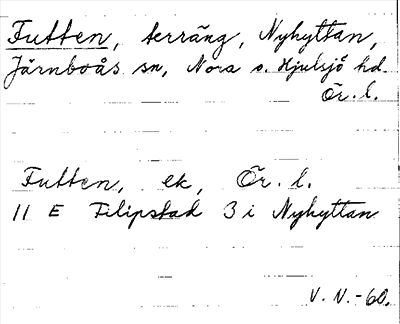 Futten, terräng, Nyhyttan,
Järnboås sn, Nora o. Hjulsjö hd.
Ör. l.
Futten, ek, Ör. l.
11 E Filipstad 3 i Nyhyttan
V. N. -60.